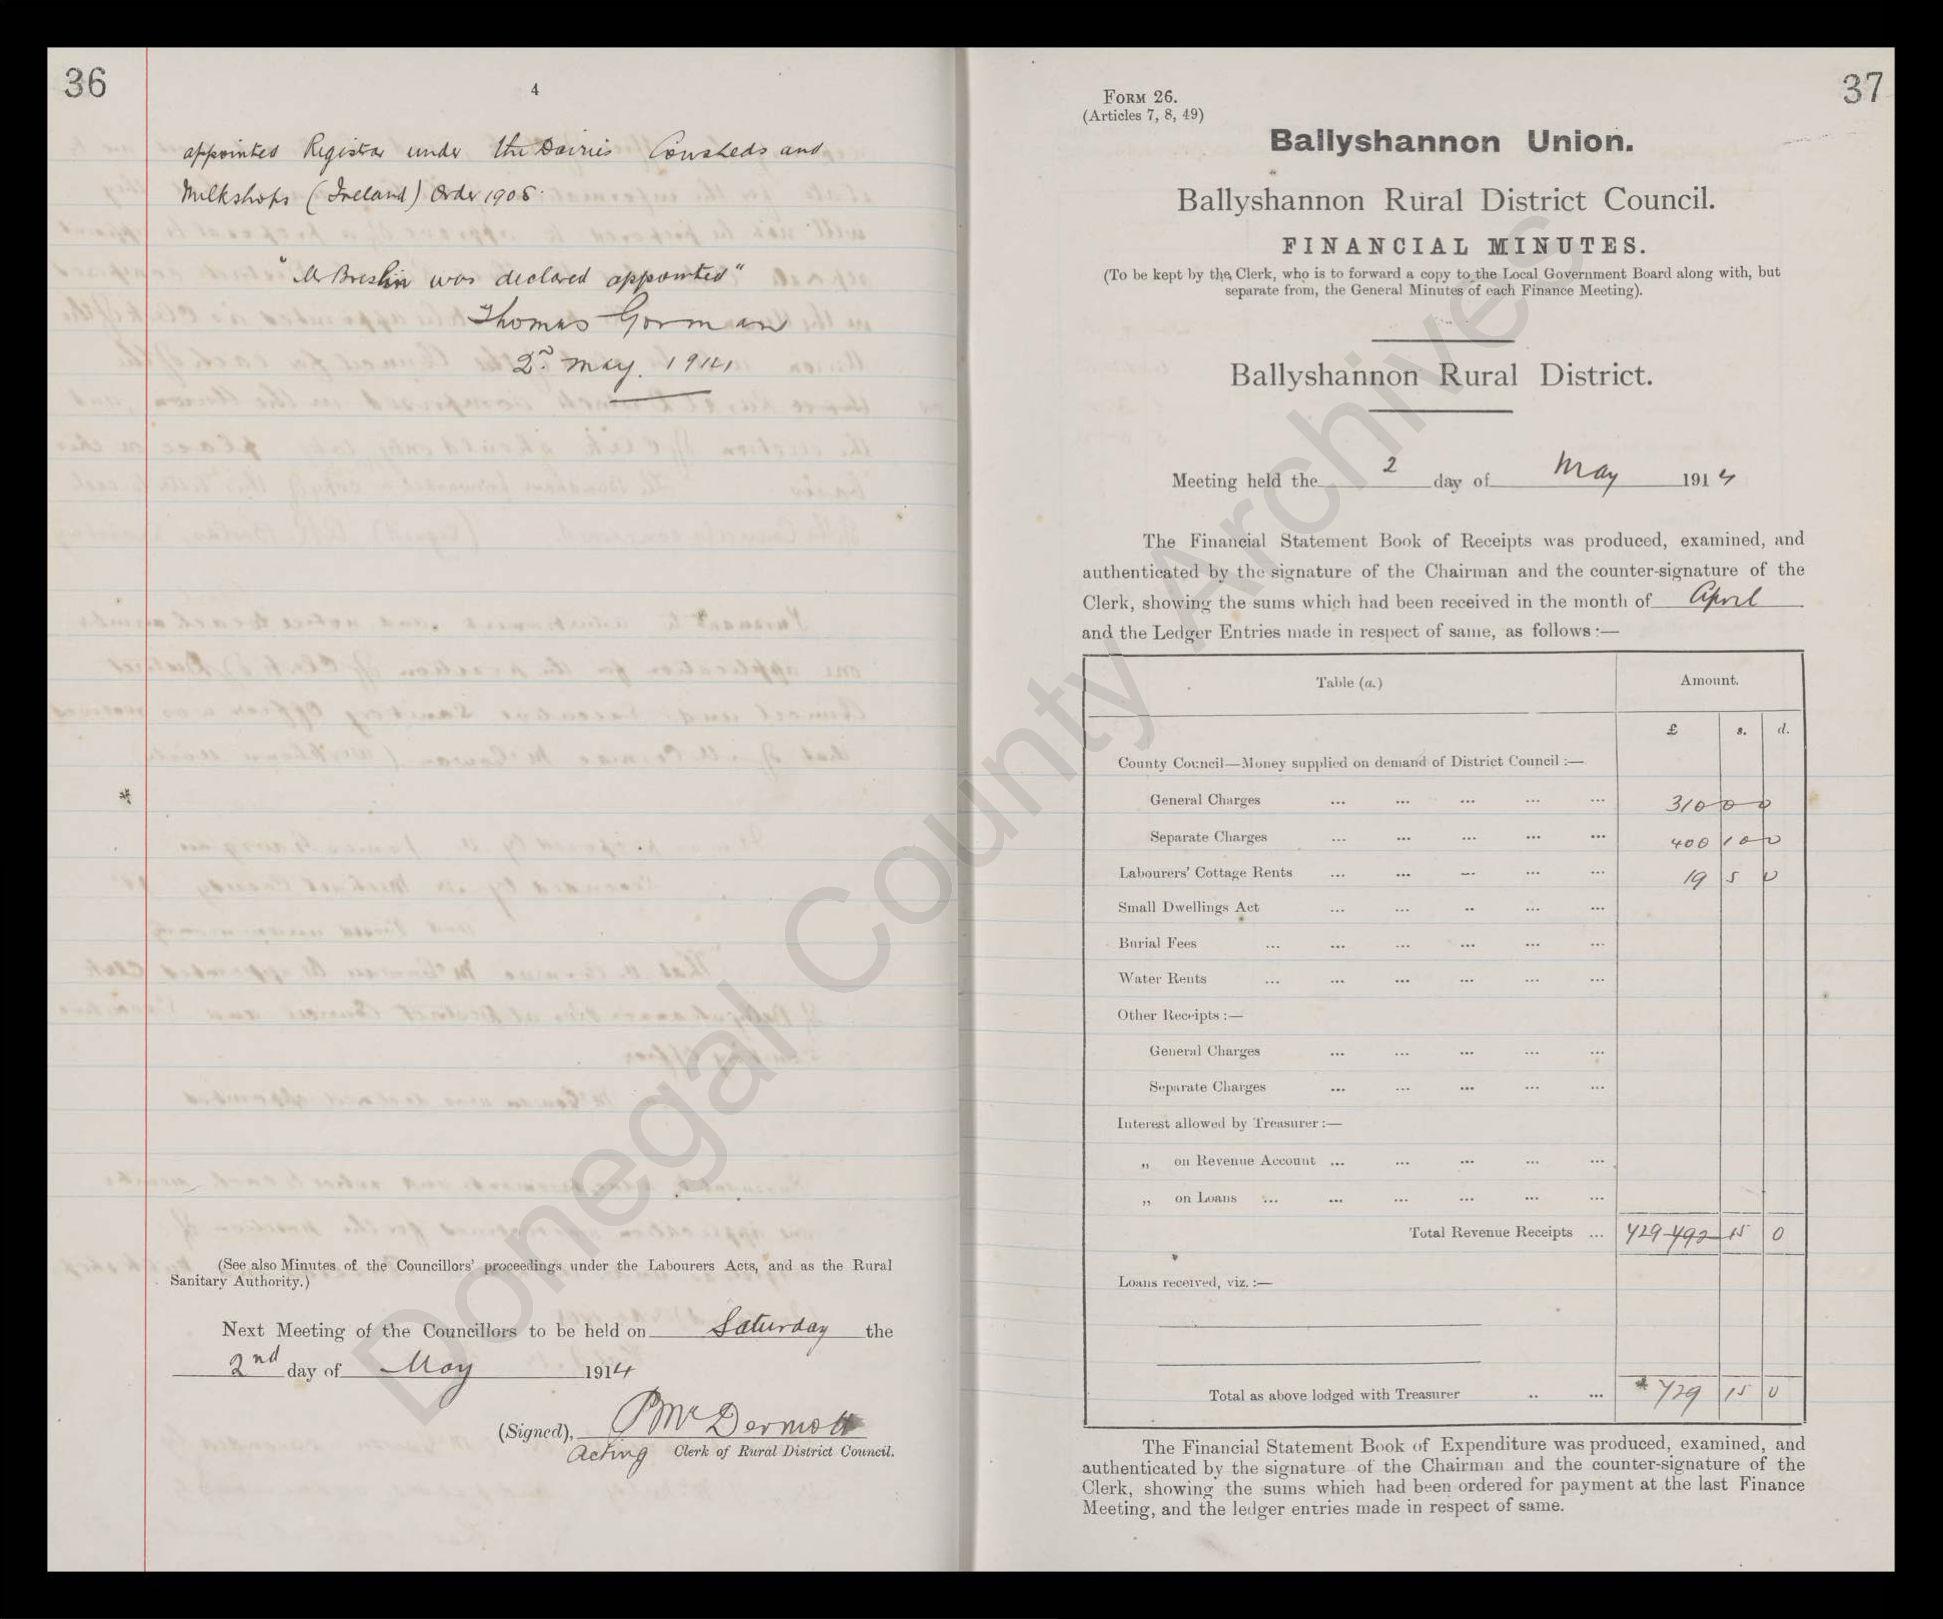 36
4
appointed Registrar under the Dairies Cowsheds and
Milkshops (Ireland) Order 1908.
"Mr Breslin was declared appointed"
Thomas Gorman
2nd May. 1914
(See also Minutes of the Councillors' proceedings under the Labourers Acts, and as the Rural
Sanitary Authority.)
Next Meeting of the Councillors to be held on Saturday the
2nd day of May 1914
(Signed), P McDermott
Acting Clerk of Rural District Council.
37
FORM 26.
(Articles 7, 8, 49)
Ballyshannon Union.
Ballyshannon Rural District Council.
FINANCIAL MINUTES.
(To be kept by the Clerk, who is to forward a copy to the Local Government Board along with, but
separate from, the General Minutes of each Finance Meeting).
Ballyshannon Rural District.
Meeting held the 2 day of May 1914
The Financial Statement Book of Receipts was produced, examined, and
authenticated by the signature of the Chairman and the counter-signature of the
Clerk, showing the sums which had been received in the month of April
and the Ledger Entries made in respect of same, as follows:—
Table (a.) Amount.
£ s. d.
County Council—Money supplied on demand of District Council :—
General Charges ... ... ... ... ... 310 0 0
Separate Charges ... ... ... ... ... 400 10 0
Labourers' Cottage Rents ... ... ... ... ... 19 5 0
Small Dwellings Act ... ... ... ... ...
Burial Fees ... ... ... ... ... ...
Water Rents ... ... ... ... ... ...
Other Receipts :—
General Charges ... ... ... ... ...
Separate Charges ... ... ... ... ...
Interest allowed by Treasurer :—
„ on Revenue Account ... ... ... ... ...
„ on Loans ... ... ... ... ... ...
Total Revenue Receipts ... 729 492 15 0
Loans received, viz. :—
Total as above lodged with Treasurer .. ... * 729 15 0
The Financial Statement Book of Expenditure was produced, examined, and
authenticated by the signature of the Chairman and the counter-signature of the
Clerk, showing the sums which had been ordered for payment at the last Finance
Meeting, and the ledger entries made in respect of same.
Donegal County Archives